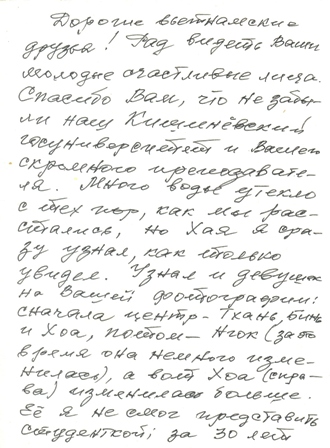 Дорогие вьетнамские
друзья! Рад видеть Ваши
молодые счастливые лица.
Спасибо Вам, что не забы-
ли наш Кишинёвский
госуниверситет и Вашего
скромного преподавате-
ля. Много воды утекло
с тех пор, как мы рас-
стались, но Хая я сра-
зу узнал, как только
увидел. Узнал и девушек
на Вашей фотографии:
сначала центр- Тхань, Бинь
и Хоа, потом- Нгок (за это
время она немного изме-
нилась), а вот Хоа (спра-
ва) изменилась больше.
Её я не смог представить
студенткой; за 30 лет